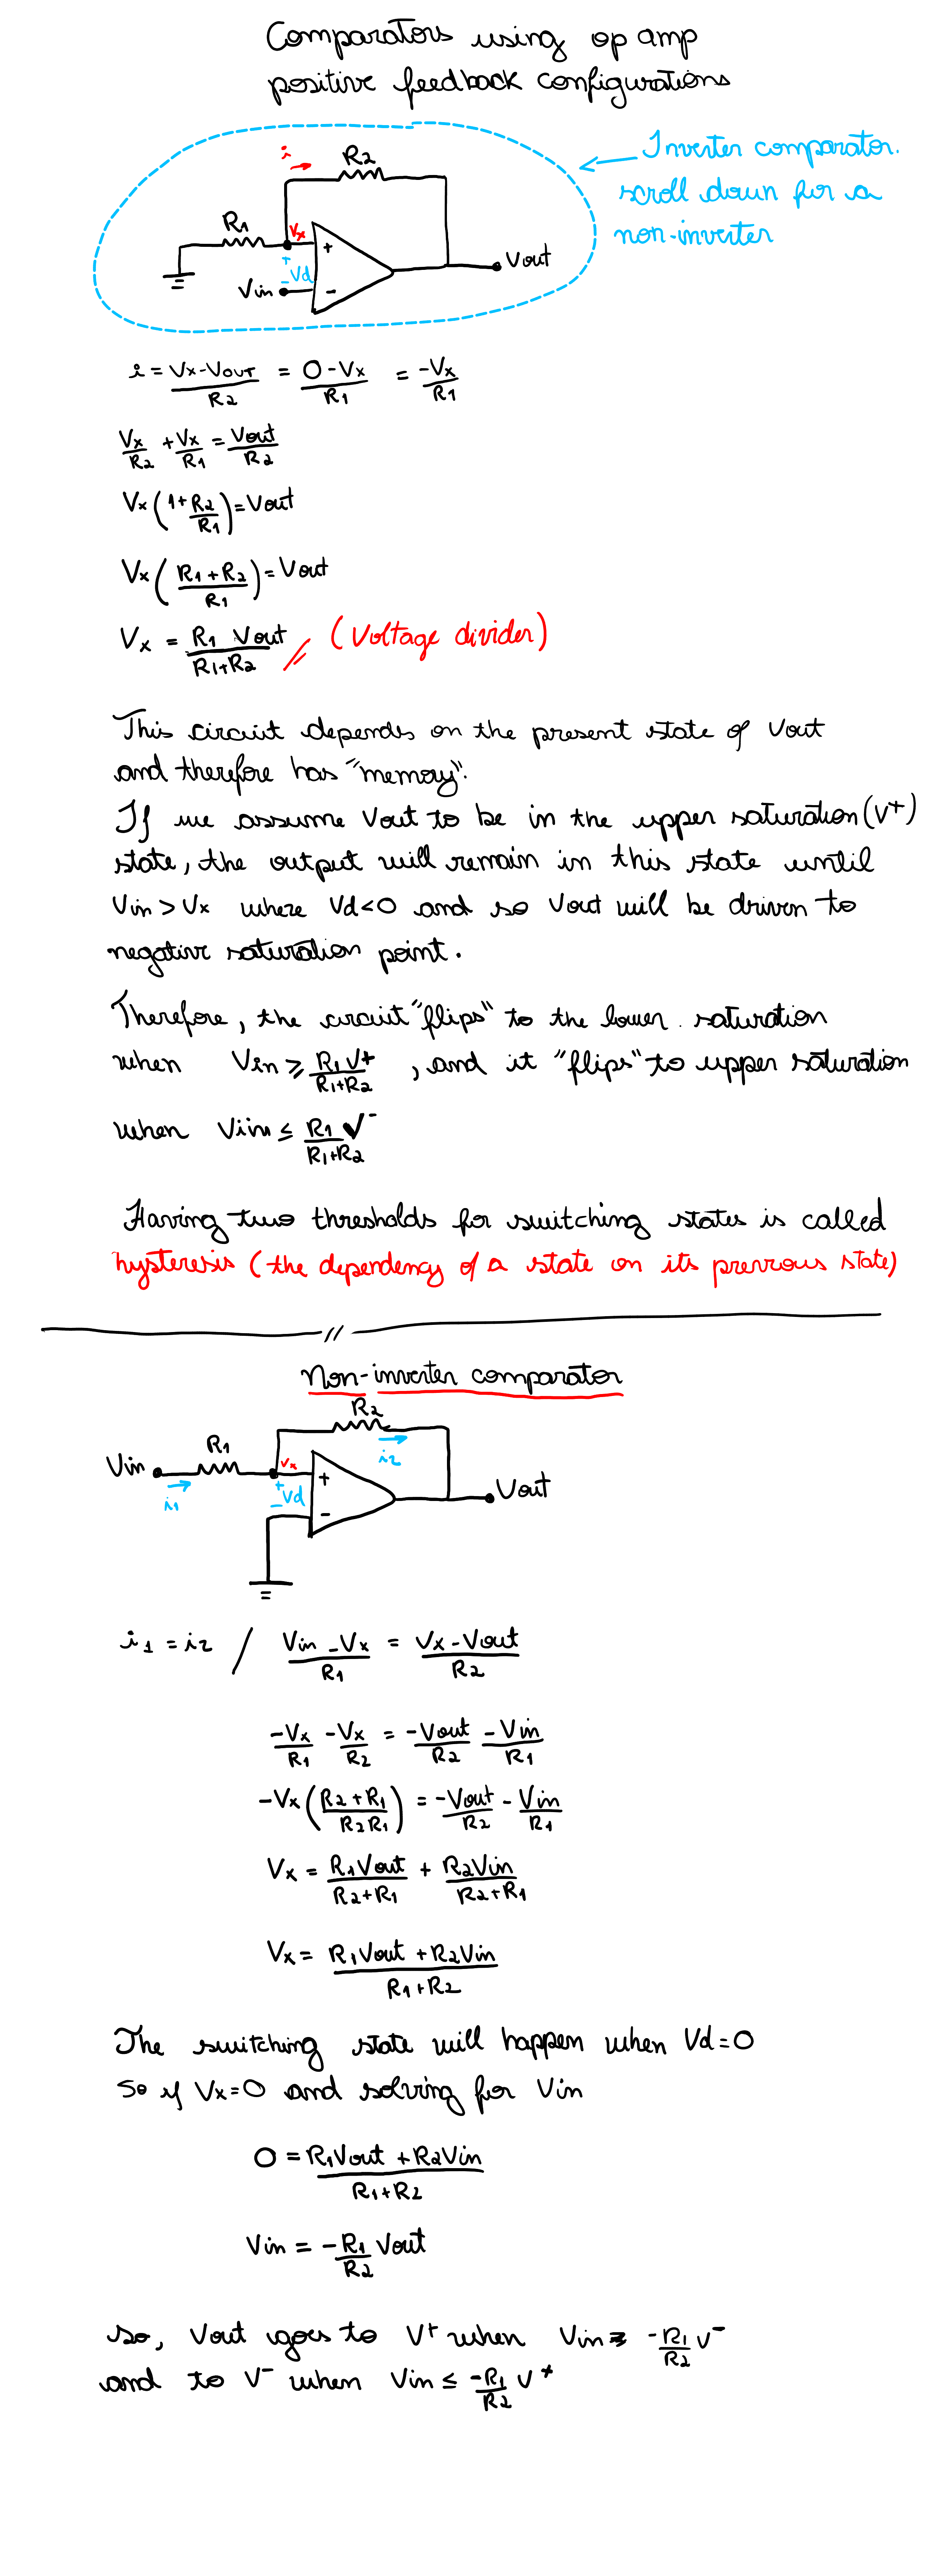 Comparators using op amp
positive feedback configurations
Inverter comparator.
scroll down for a
non-inverter
i
R2
R1
Vx
+
+
Vd
-
-
Vin
Vout
i = Vx-Vout/R2 = 0-Vx/R1 = -Vx/R1
Vx/R2 + Vx/R1 = Vout/R2
Vx(1+R2/R1) = Vout
Vx(R1+R2/R1) = Vout
Vx = R1 Vout/R1+R2 // (Voltage divider)
This circuit depends on the present state of Vout
and therefore has "memory".
If we assume Vout to be in the upper saturation (V+)
state, the output will remain in this state until
Vin > Vx where Vd<0 and so Vout will be driven to
negative saturation point.
Therefore, the circuit "flips" to the lower saturation
when Vin ≥ R1 V+/R1+R2, and it "flips" to upper saturation
when Vin ≤ R1 V-/R1+R2
Having two thresholds for switching states is called
hysteresis (the dependency of a state on its previous state)
//
Non-inverter comparator
R2
R1
i2
Vin
Vx
+
+
Vd
-
-
i1
Vout
i1 = i2 / Vin - Vx/R1 = Vx - Vout/R2
-Vx/R1 - Vx/R2 = -Vout/R2 - Vin/R1
-Vx(R2+R1/R2R1) = -Vout/R2 - Vin/R1
Vx = R1Vout/R2+R1 + R2Vin/R2+R1
Vx = R1Vout + R2Vin/R1+R2
The switching state will happen when Vd=0
So if Vx=0 and solving for Vin
0 = R1Vout + R2Vin/R1+R2
Vin = -R1/R2 Vout
so, Vout goes to V+ when Vin ≥ -R1/R2 V-
and to V- when Vin ≤ -R1/R2 V+